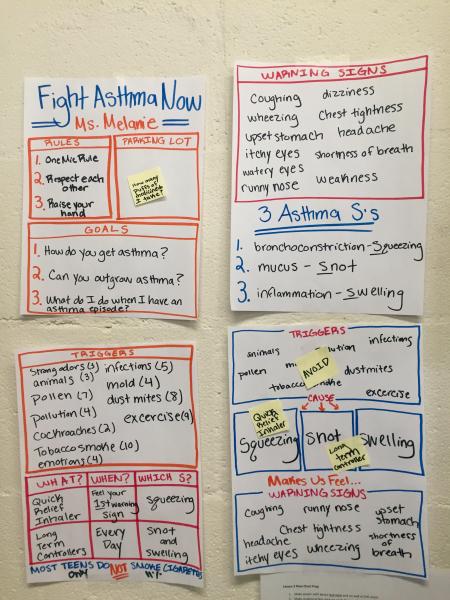 Fight Asthma Now
Ms. Melanie
RULES
1. One Mic Rule
2. Respect each
other
3. Raise your
hand
PARKING LOT
How many
puffs of
medicine do
I take?
GOALS
1. How do you get asthma?
2. Can you outgrow asthma?
3. What do I do when I have an
asthma episode?
WARNING SIGNS
Coughing dizziness
wheezing Chest tightness
upset stomach headache
itchy eyes shortness of breath
watery eyes
runny nose weakness
3 Asthma S's
1. bronchoconstriction - Squeezing
2. mucus - Snot
3. inflammation - Swelling
TRIGGERS
Strong odors (3) infections (5)
animals (3) mold (4)
Pollen (7) dust mites (8)
Pollution (4) excercise (9)
Cockroaches (2)
Tobacco smoke (10)
emotions (4)
WHAT? WHEN? WHICH S?
Quick
Relief
Inhaler
Feel your
1st warning
Sign
Squeezing
Long
Term
Controllers
Every
Day
Snot
and
swelling
MOST TEENS DO NOT SMOKE CIGARETTES
TRIGGERS
animals infections
pollen dust mites
excercise
AVOID
CAUSE
Quick
Relief
Inhaler
Squeezing
Snot
Swelling
Long
Term
Controller
Makes Us Feel...
WARNING SIGNS
Coughing runny nose upset
stomach
Chest tightness
headache shortness
of
itchy eyes wheezing breath